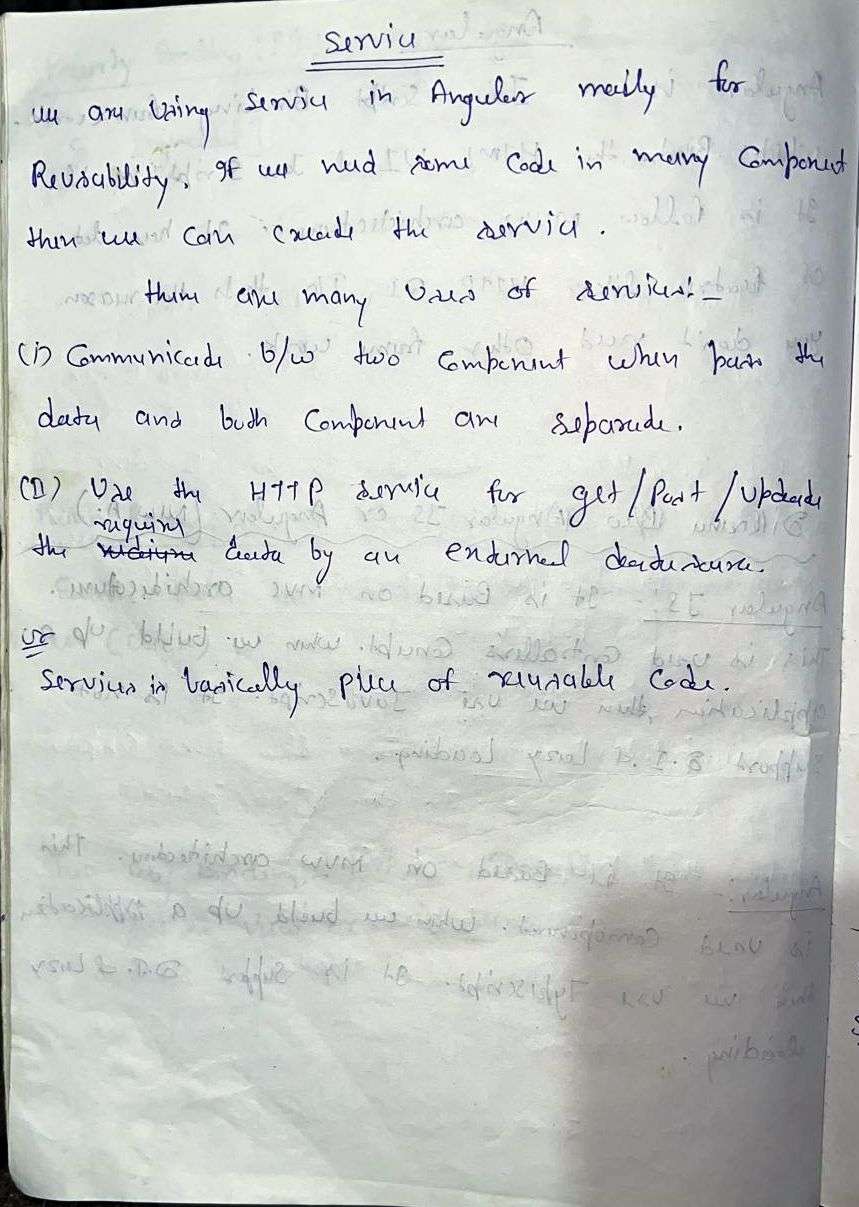 Service
we are Using service in Angular mostly for
Reusability. If we need some code in many Component
then we can create the service.
there are many Uses of services:-
(i) Communicate b/w two component when pass the
data and both Component are separate.
(II) Use the HTTP service for get/Post/Update
require
the data by an external datasource.
or
Services is basically piece of reusable Code.